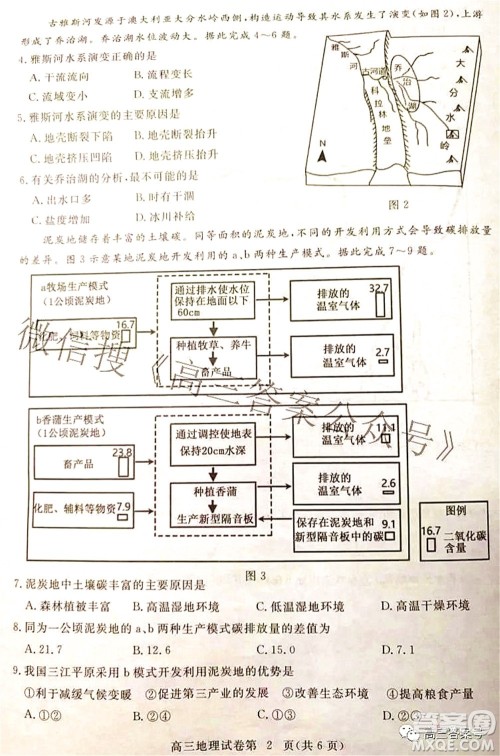 古雅斯河发源于澳大利亚大分水岭西侧,构造运动导致其水系发生了演变(如图2),上游
形成了乔治湖。乔治湖水位波动大。据此完成4~6题。
4.雅斯河水系演变的是
A.干流流向 B.流程变长
C.流域变小 D.支流增多
5.雅斯河水系演变的主要原因是
A.地壳断裂下陷 B.地壳断裂抬升
C.地壳挤压凹陷 D.地壳挤压抬升
6.有关乔治湖的分析,最不可能的是
A.出水口多 B.时有干涸
C.盐度增加 D.冰川补给
雅斯河
古河道
乔治湖
科拉林地垒
大分水岭
N
图2
泥炭地储存着丰富的土壤碳。同等面积的泥炭地,不同的开发利用方式会导致碳排放量
的差异。图3示意某地泥炭地开发利用的a、b两种生产模式。据此完成7~9题。
a牧场生产模式
(1公顷泥炭地)
16.7
化肥、辅料等物资
通过排水使水位
保持在地面以下
60cm
种植牧草、养牛
畜产品
排放的
温室气体
32.7
排放的
温室气体
2.7
b香蒲生产模式
(1公顷泥炭地)
23.8
畜产品
化肥、辅料等物资
7.9
通过调控使地表
保持20cm水深
种植香蒲
生产新型隔音板
排放的
温室气体
11.1
排放的
温室气体
2.6
保存在泥炭地和
新型隔音板中的碳
9.1
图例
16.7
二氧化碳
含量
图3
7.泥炭地中土壤碳丰富的主要原因是
A.森林植被丰富 B.高温湿地环境 C.低温湿地环境 D.高温干燥环境
8.同为一公顷泥炭地的a、b两种生产模式碳排放量的差值为
A.21.7 B.12.6 C.15.0 D.7.1
9.我国三江平原采用b模式开发利用泥炭地的优势是
①利于减缓气候变暖 ②促进第三产业的发展 ③改善生态环境 ④提高粮食产量
A.①③ B.②③ C.①④ D.②④
高三地理试卷第 2 页(共6页)
微信搜《高三答案公众号》
高三答案号